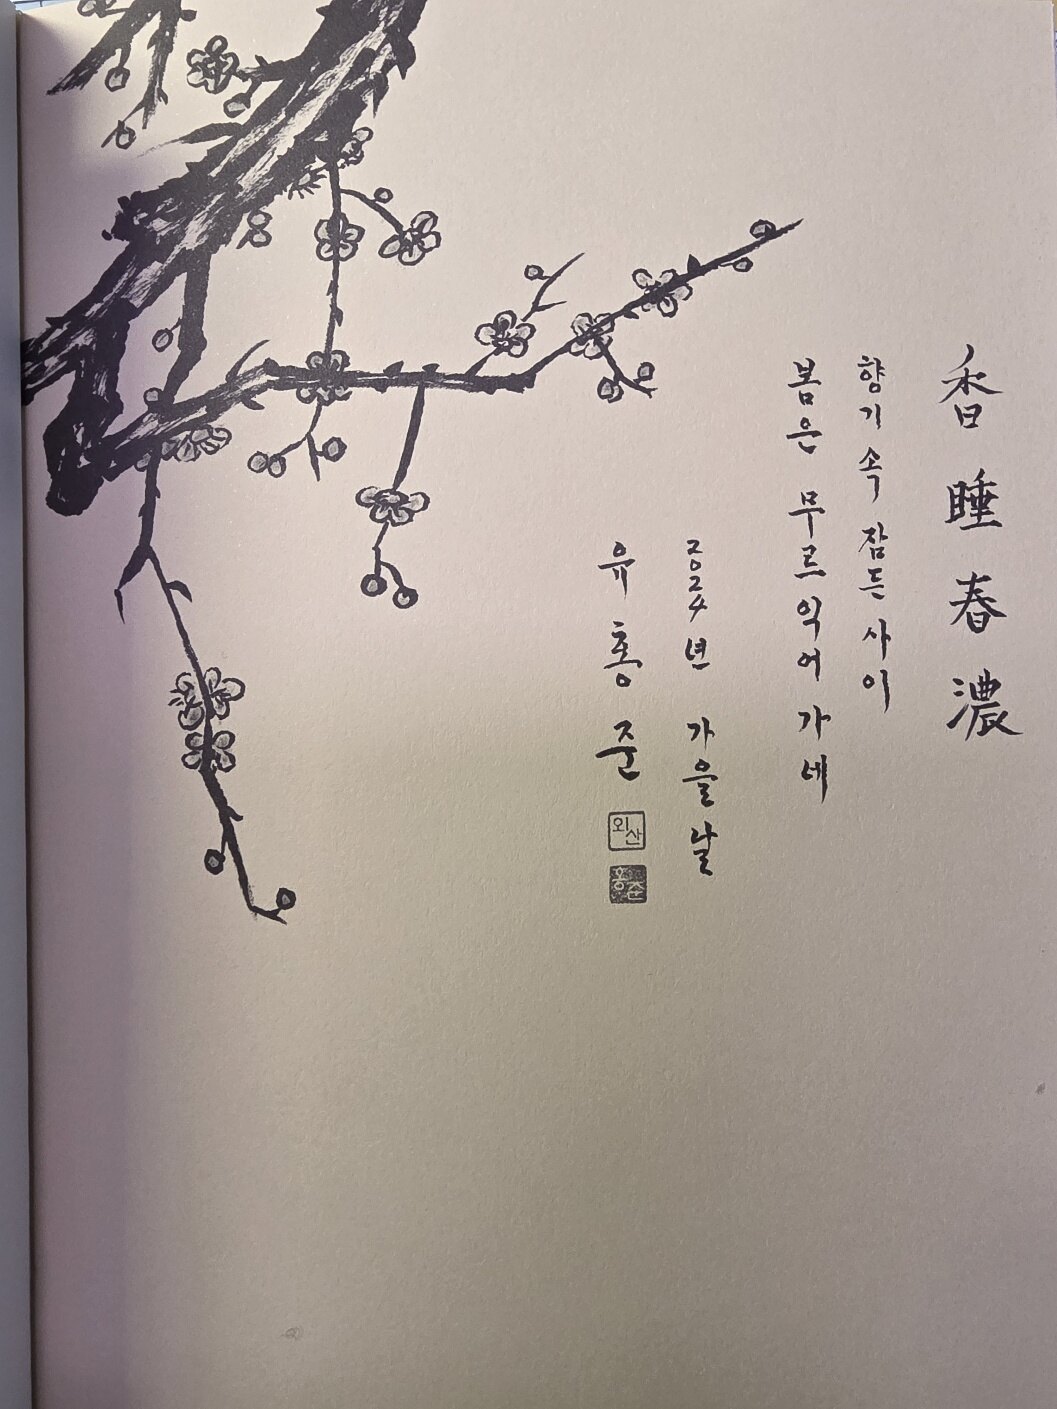 香睡春濃
향기 속 잠든 사이
봄은 무르익어 가네
2024년 가을날
유홍준
외산
홍준